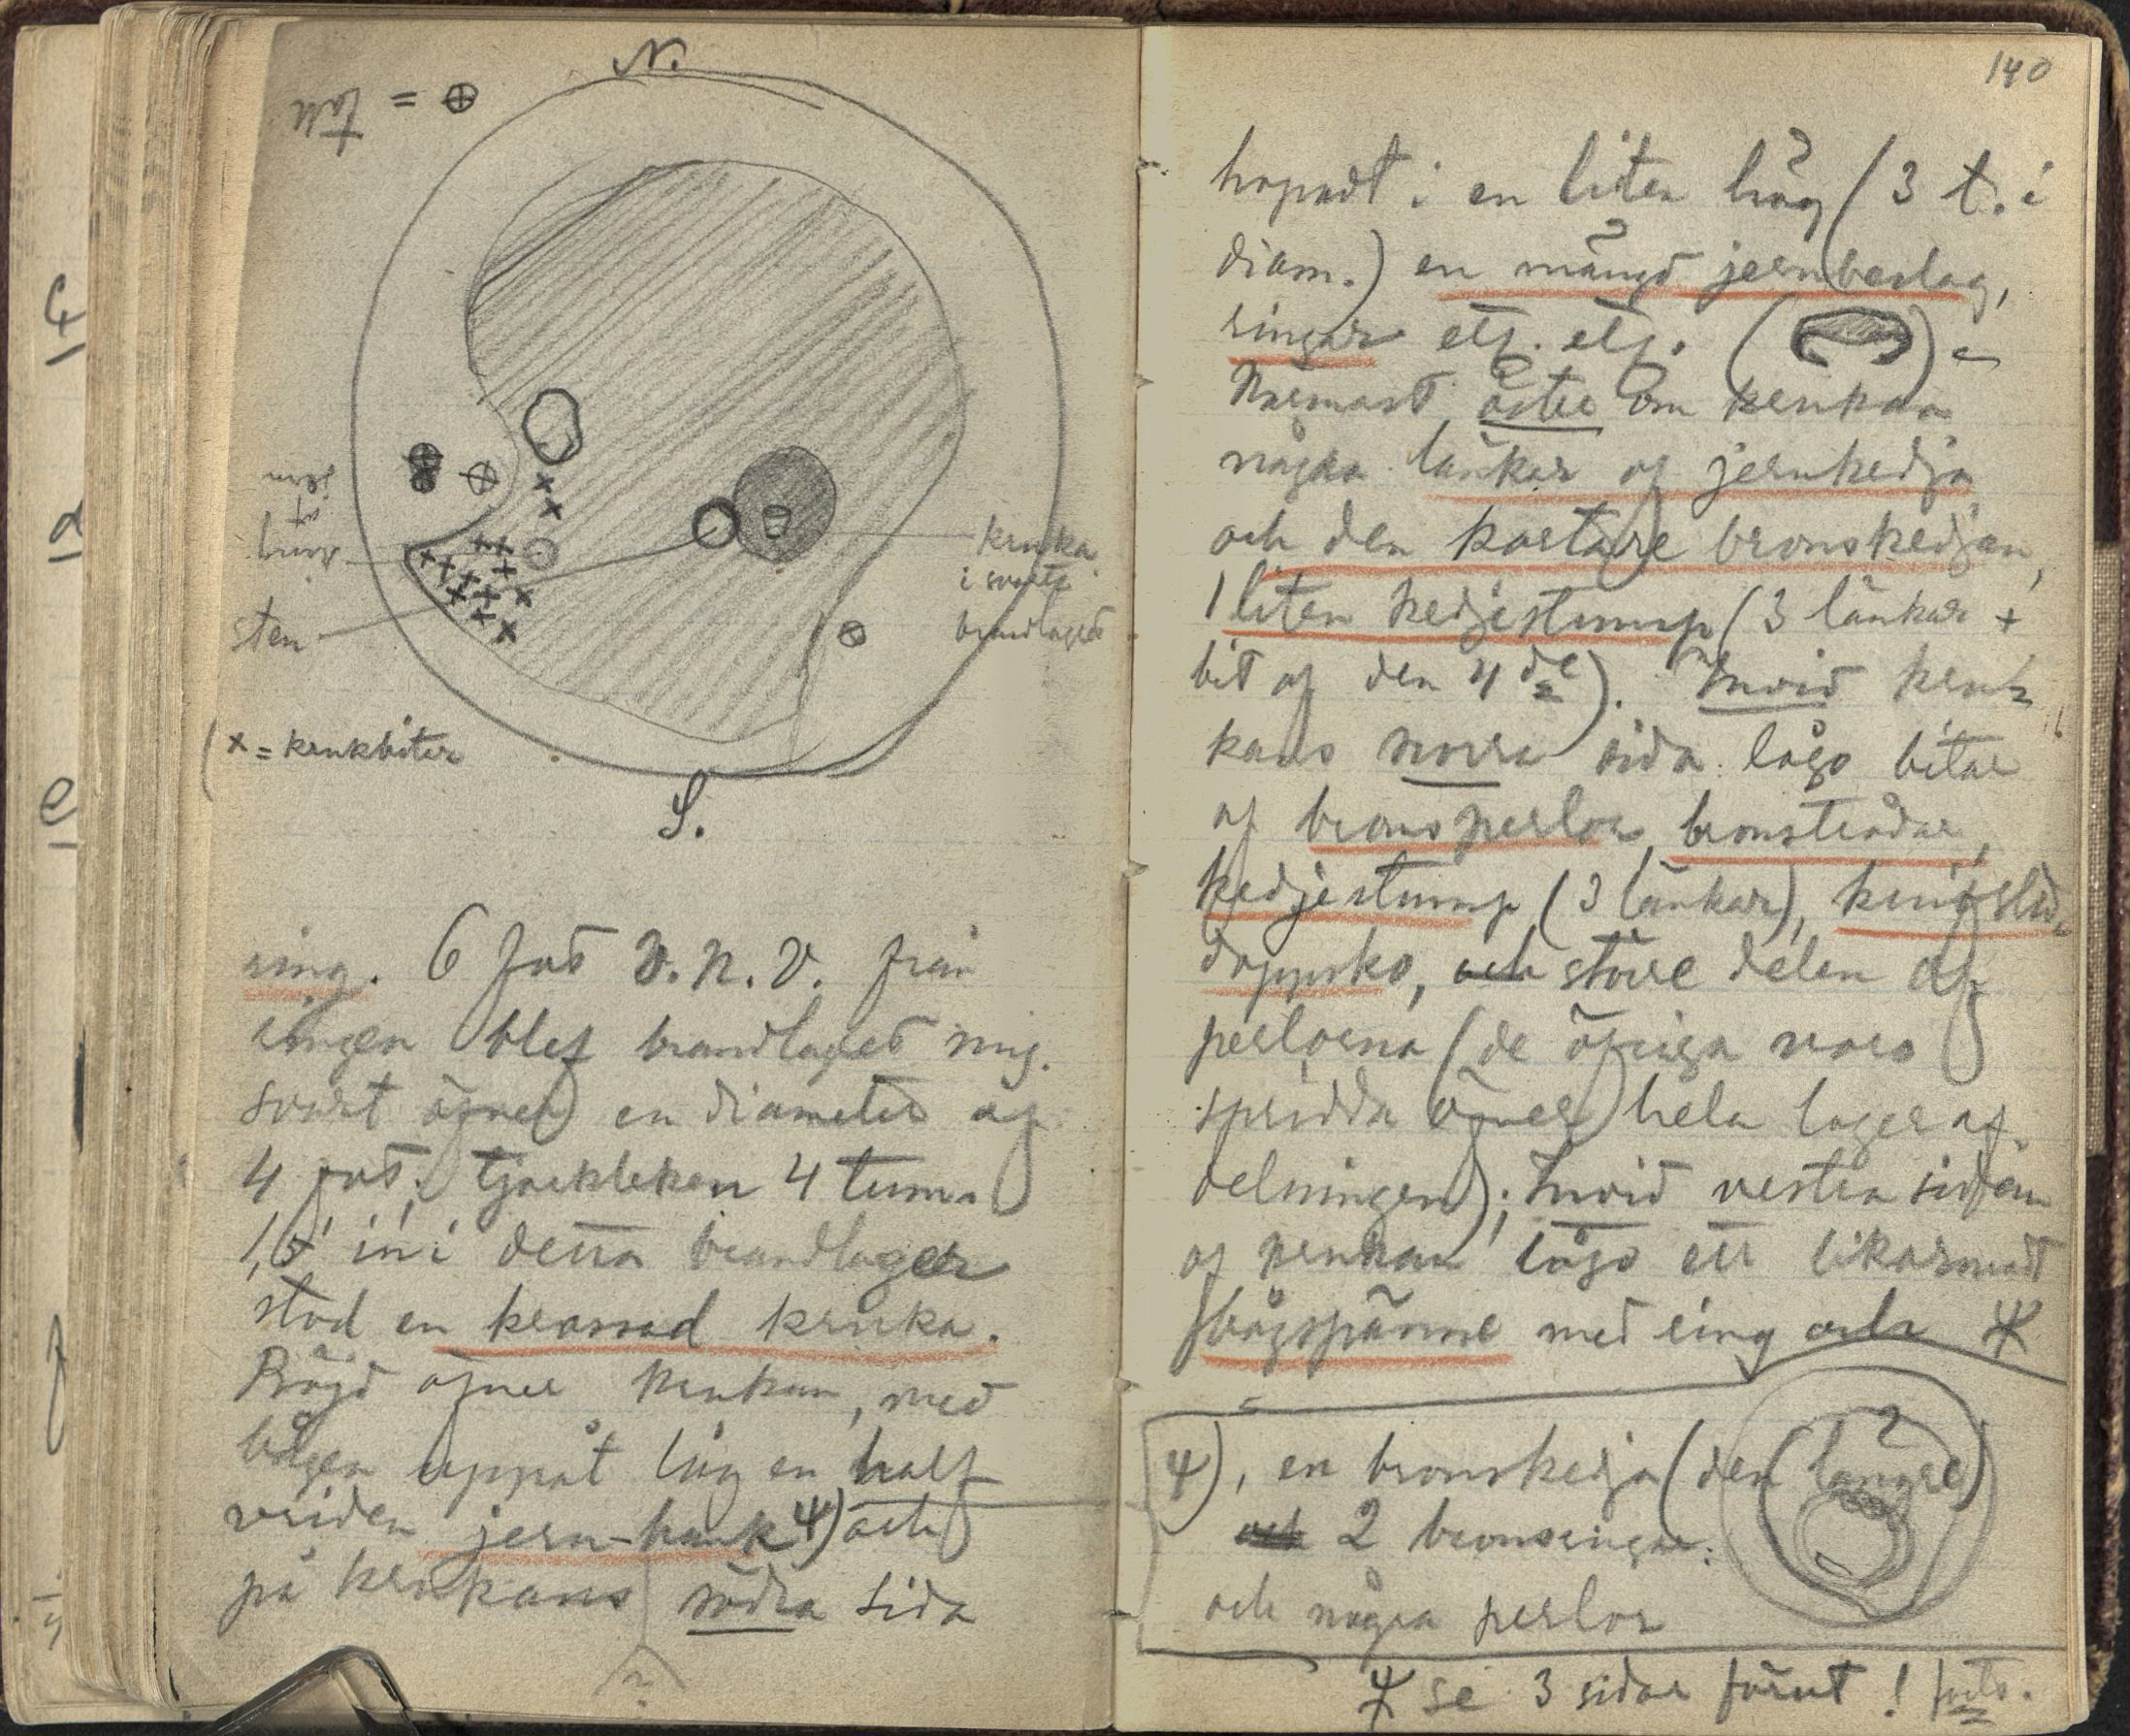 N.
tall = ⊕
jern
kruka
i svarta
brandlagret
sten
(x = krukbitar
S.
ring. 6 fot V.N.V. från
ringen blef brandlagret mg.
svart öfver en diameter af
4 fot; tjockleken 4 tum.
1,5' in i detta brandlager
stod en krossad kruka.
Böjd öfver krukan, med
bågen uppåt låg en half
vriden jern-hank 4) och
på krukans södra sida
(?)
140
hopadt i en liten hög (3 t. i
diam.) en mängd jernbeslag,
ringar etc. etc. ( )
Närmast öster om krukan
några länkar af jernkedja
och den kortare bronskedjan,
1 liten kedjestump (3 länkar +
bit af den 4de). Invid kruk
kans norra sida lågo bitar
af bronsperlor, bronstrådar,
kedjestump (3 länkar), knifslid-
doppsko, och större delen af
perlorna (de öfriga voro
spridda öfver hela lageraf-
delningen); Invid vestra sidan
af krukan lågo ett likarmadt
bågspänne med ring och
4), en bronskedja (den längre)
och 2 bronsringar
och några perlor
se 3 sidor förut! forts.